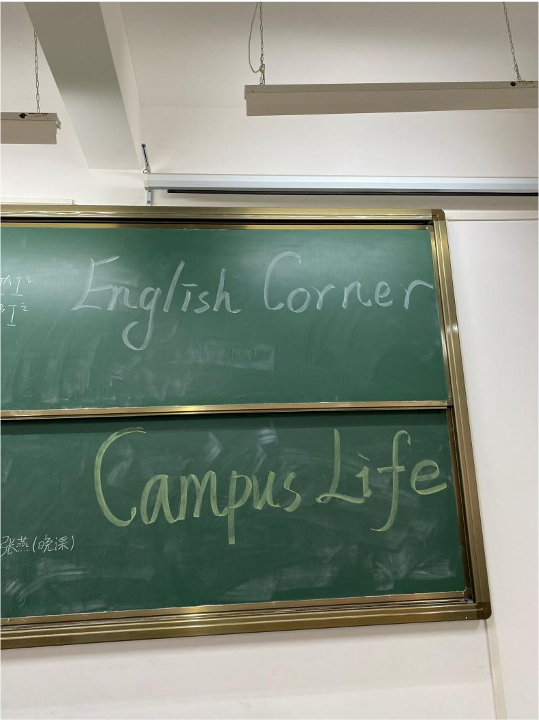 English Corner
Campus Life
张燕(晚课)